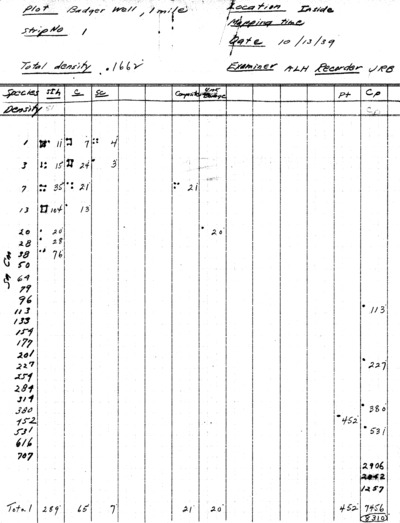 Plot Badger Well, 1 mile Location Inside
Strip No 1 Mapping time
Date 10/13/39
Total density .1662 Examiner ALH Recorder JRB
Species Ith C Sc Composites Pt Cp
Density
1 11 7 4
3 15 24 3
7 35 21 21
13 104 13
20 20 20
28 28
38 76
50
64
79
96
113 113
133
154
177
201
227 227
254
284
314
380 380
452 452
531 531
616
707
2906
2042
1257
Total 289 65 7 21 20 452 7456
8310
Sq Cm